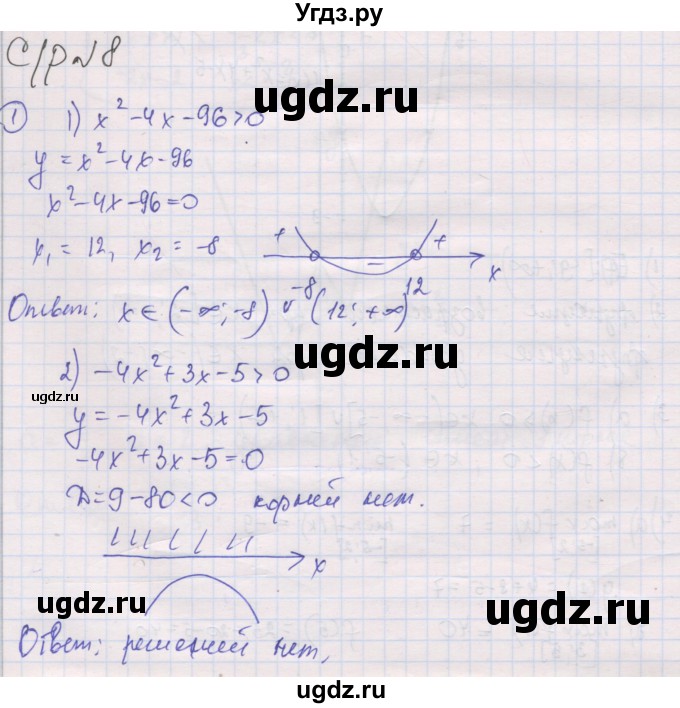 Угдз.ру
С/р №8
ugdz.ru
① 1) x² - 4x - 96 > 0
y = x² - 4x - 96
x² - 4x - 96 = 0
x₁ = 12, x₂ = -8
+ - + x
-8 12
Ответ: x ∈ (-∞; -8) ∪ (12; +∞)
ugdz.ru
2) -4x² + 3x - 5 > 0
ugdz.ru
y = -4x² + 3x - 5
-4x² + 3x - 5 = 0
Д = 9 - 80 < 0 корней нет.
ugdz.ru
x
ugdz.ru
ugdz.ru
Ответ: решений нет.
ugdz.ru